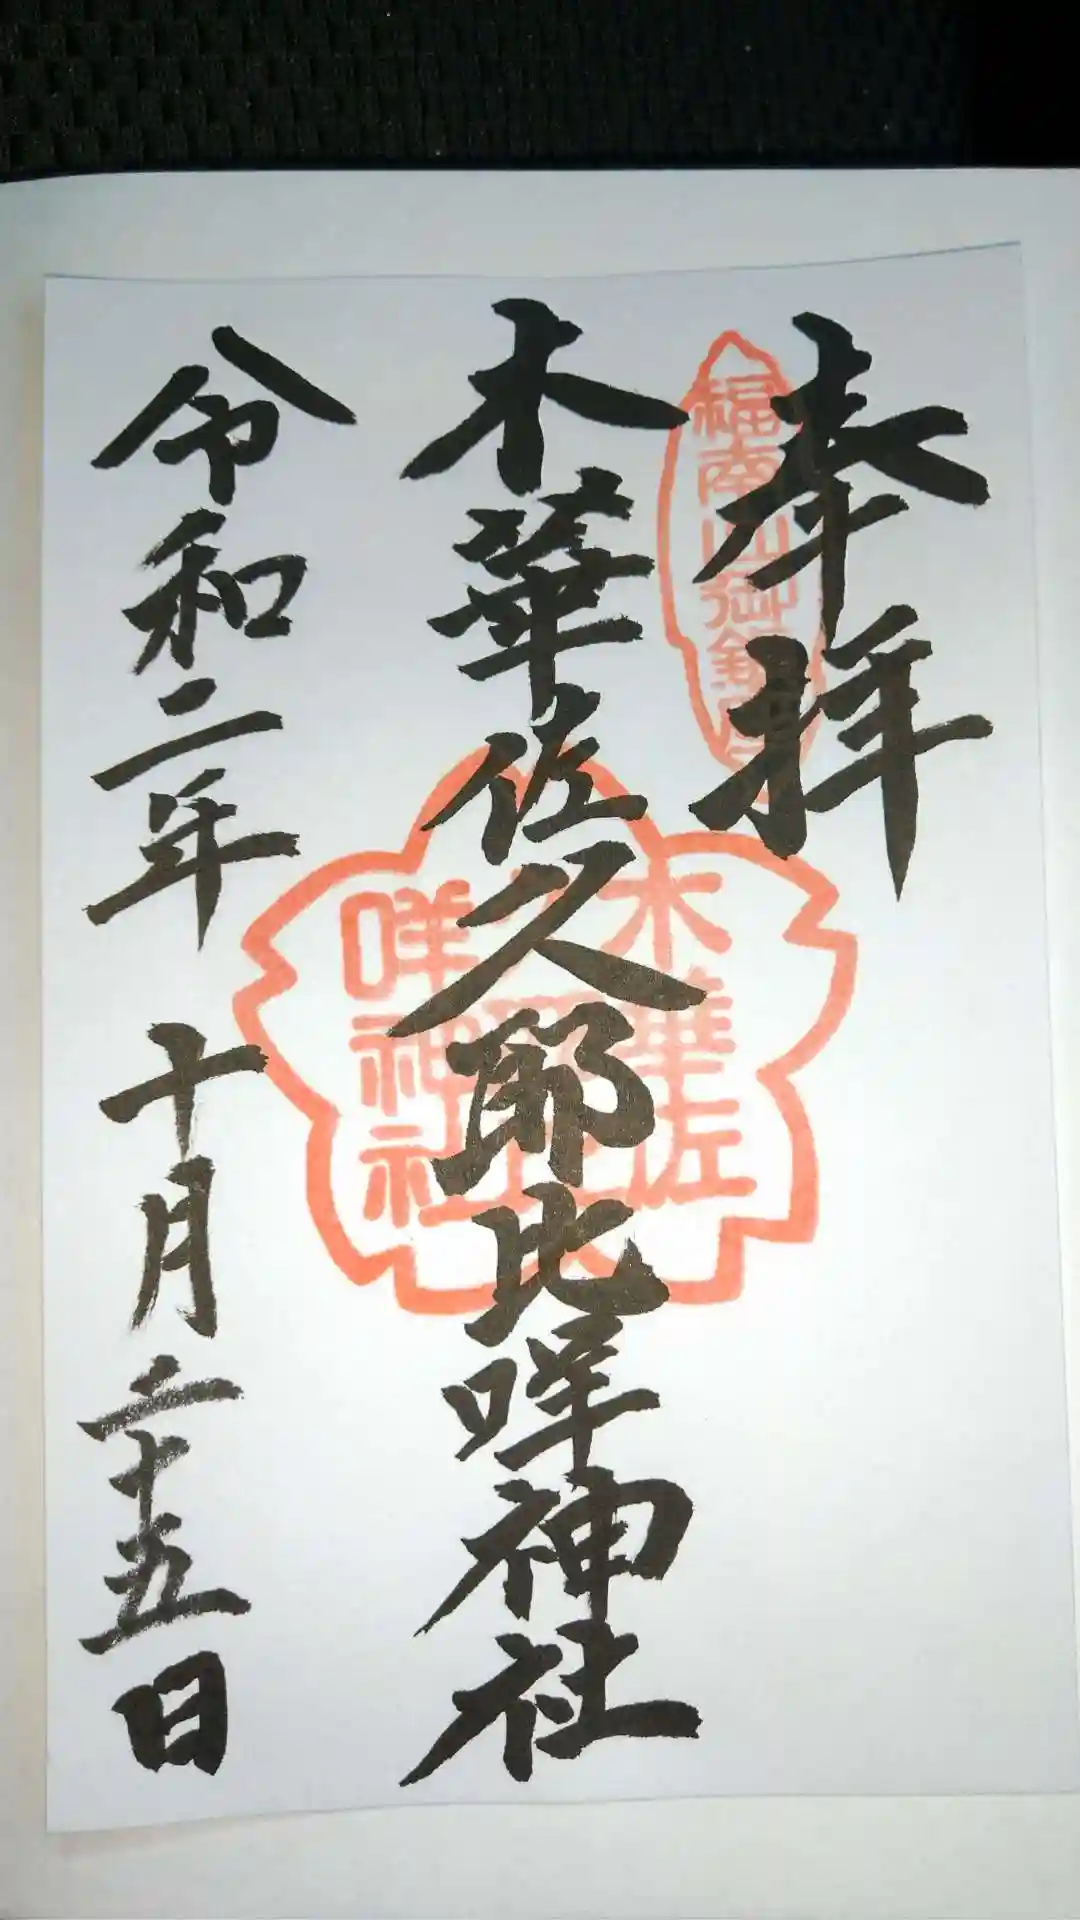 奉拝
福南山御鎮座
木華佐久耶比咩神社
木華佐
咩神社
令和二年 十月二十五日